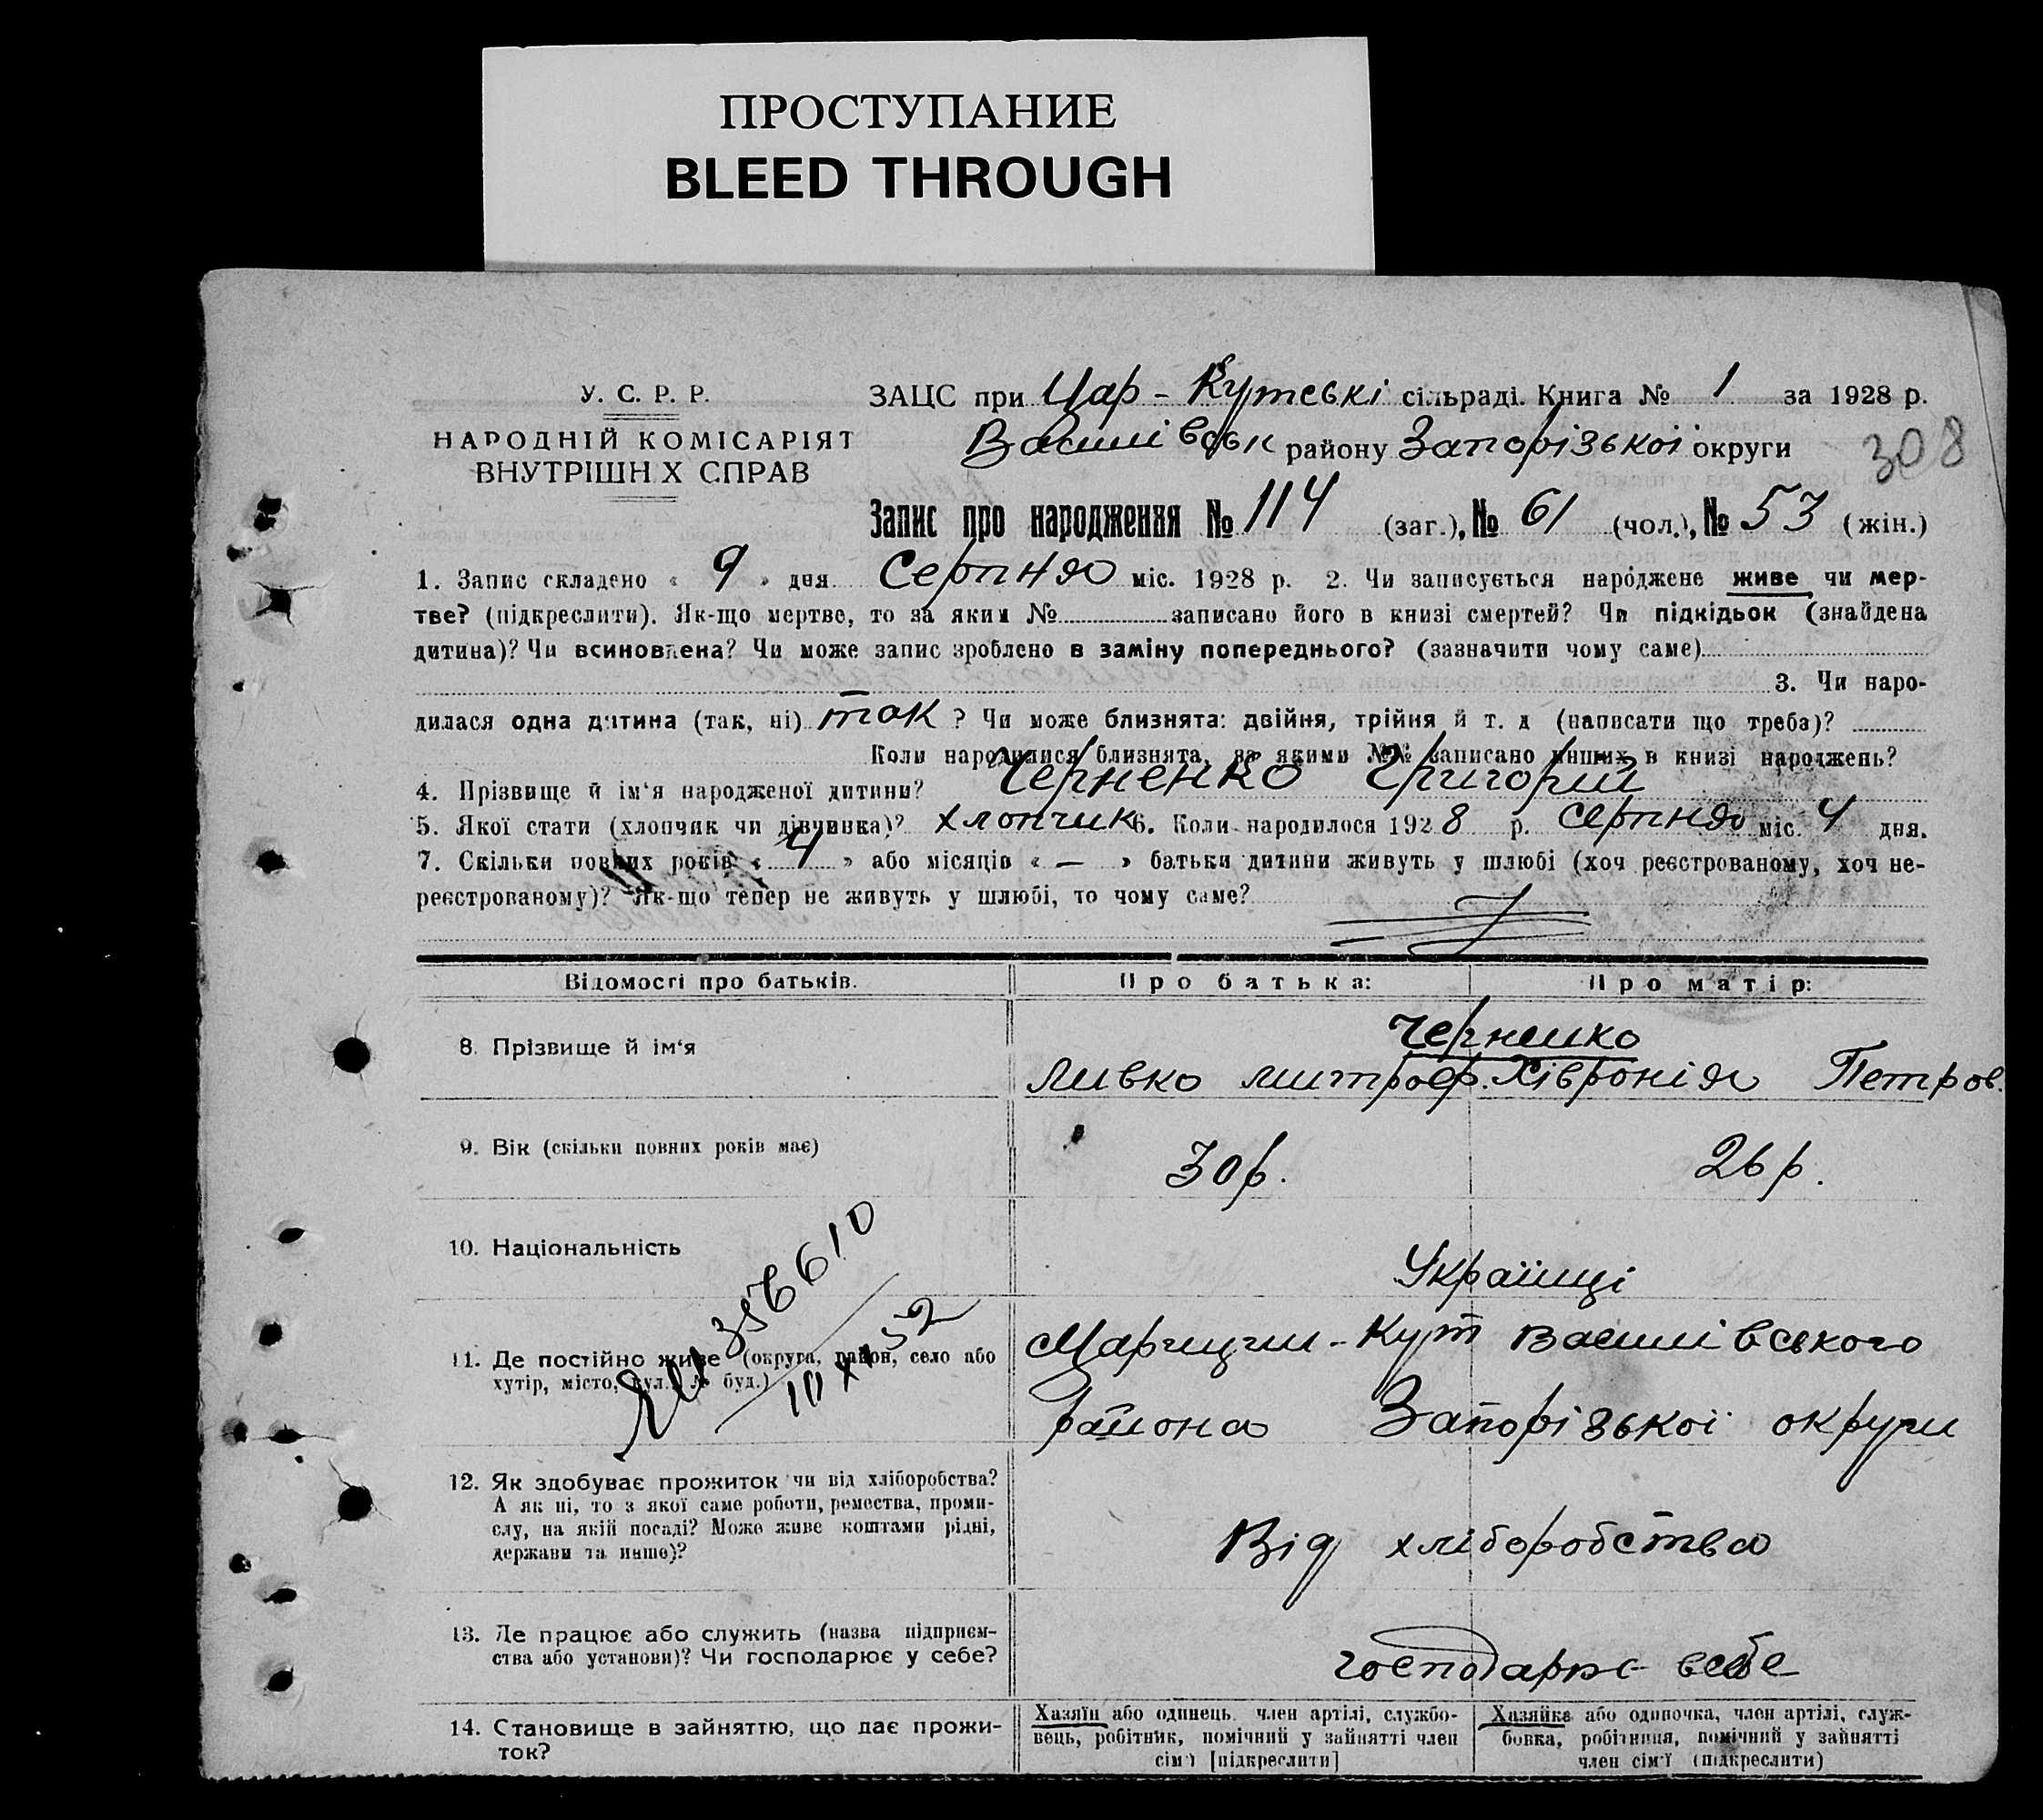 ПРОСТУПАНИЕ
BLEED THROUGH
У. С. Р. Р.
НАРОДНІЙ КОМІСАРІЯТ
ВНУТРІШН Х СПРАВ
ЗАЦС при Цар - Кутські сільраді. Книга № 1 за 1928 р.
Василівськ району Запорізькоі округи
308
Запис про народження № 114 (заг.), № 61 (чол.), № 53 (жін.)
1. Запис складено « 9 » дня Серпня міс. 1928 р. 2. Чи записується народжене живе чи мер-
тве? (підкреслити). Як-що мертве, то за яким № записано його в книзі смертей? Чи підкідьок (знайдена
дитина)? Чи всиновлена? Чи може запис зроблено в заміну попереднього? (зазначити чому саме)
3. Чи наро-
дилася одна дитина (так, ні) так ? Чи може близнята: двійня, трійня й т. д (написати що треба)?
Коли народилися близнята, за якими №№ записано инших в книзі народжень?
4. Прізвище й ім'я народженої дитини? Черненко Григорій
5. Якої стати (хлопчик чи дівчинка)? хлопчик 6. Коли народилося 1928 р. Серпня міс. 4 дня.
7. Скільки повних років « 4 » або місяців « — » батьки дитини живуть у шлюбі (хоч реєстрованому, хоч не-
реєстрованому)? Як-що тепер не живуть у шлюбі, то чому саме?
Відомості про батьків. Про батька: Про матір:
8. Прізвище й ім'я
Черненко
Ливко Митроф. Хівронія Петров.
9. Вік (скільки повних років має) 30 р. 26 р.
10. Національність Українці
356610
10 XI 52
11. Де постійно живе (округа, район, село або
хутір, місто, вул., № буд.)
Царицин - Кут Василівського
района Запорізькоі округи
12. Як здобуває прожиток чи від хліборобства?
А як ні, то з якої саме роботи, ремества, проми-
слу, на якій посаді? Може живе коштами рідні,
держави та инше)?
Від хліборобства
13. Де працює або служить (назва підприєм-
ства або установи)? Чи господарює у себе?
господарює в себе
14. Становище в зайняттю, що дає прожи-
ток?
Хазяїн або одинець член артілі, службо-
вець, робітник, помічний у зайнятті член
сім'ї [підкреслити]
Хазяйка або одиночка, член артілі, служ-
бовка, робітниця, помічний у зайнятті
член сім'ї (підкреслити)